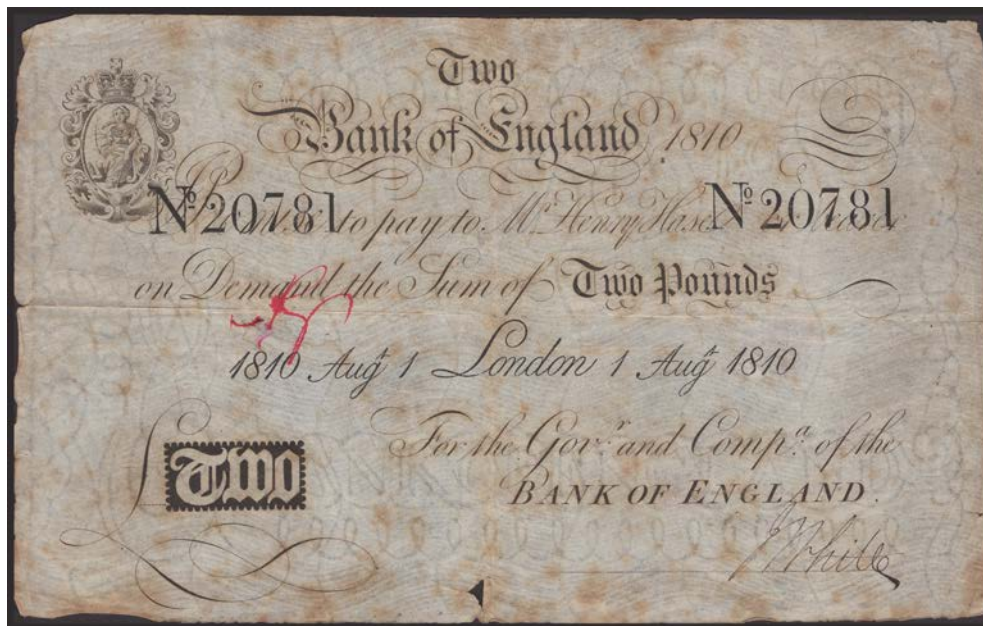 Two
Bank of England 1810
Nº 20781 to pay to Mr. Henry Hase Nº 20781
on Demand the Sum of Two Pounds
1810 Augt 1 London 1 Augt 1810
For the Govr. and Compa. of the
£ Two
BANK OF ENGLAND.